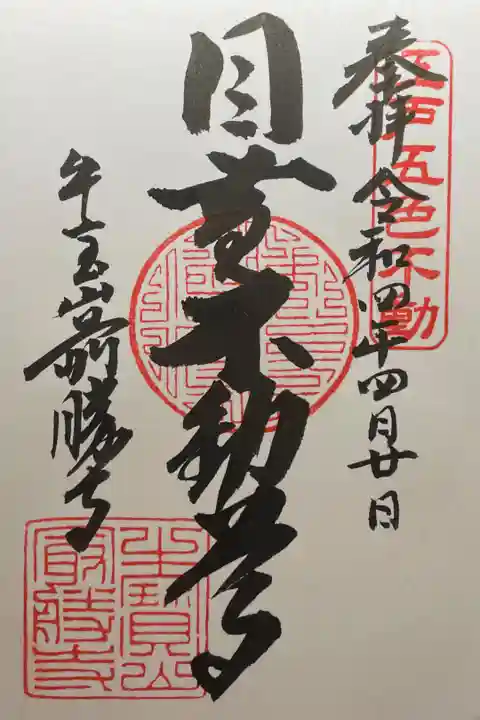 江戸五色不動
奉拝 令和四年四月廿日
目黄不動尊
牛宝山最勝寺
牛寳山
最勝寺